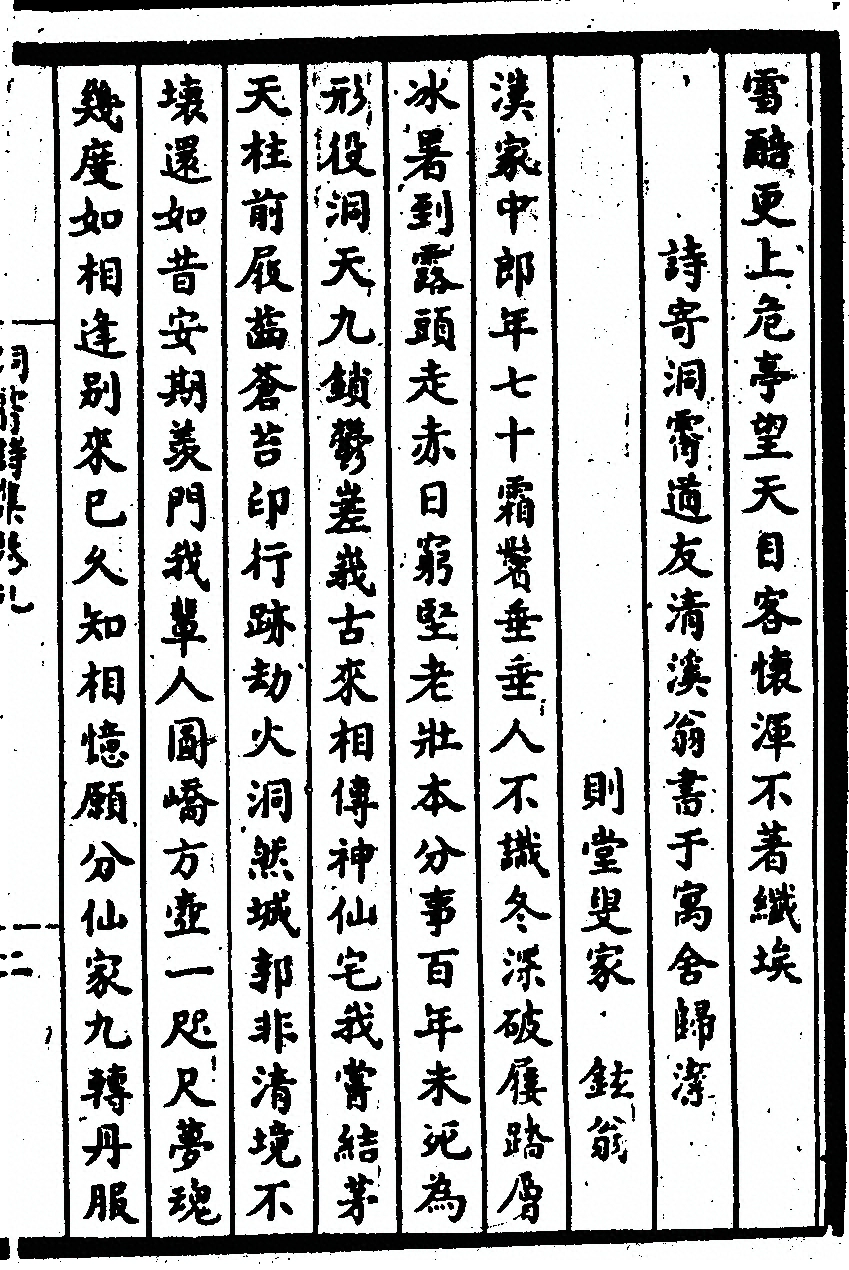 雪酷更上危亭望天目客懷渾不著纖埃
詩寄洞霄道友清溪翁書于寓舍歸潔
則堂叟家 鉉翁
漢家中郎年七十霜鬢垂垂人不識冬深破屨踏層
冰暑到露頭走赤日窮堅老壯本分事百年未死為
形役洞天九鎖鬱嵳峩古來相傳神仙宅我嘗結茅
天柱前屐齒蒼苔印行跡劫火洞然城郭非清境不
壞還如昔安期羨門我輩人圎嶠方壺一咫尺夢魂
幾度如相逢別來已久知相憶願分仙家九轉丹服
洞霄詩集卷九
二